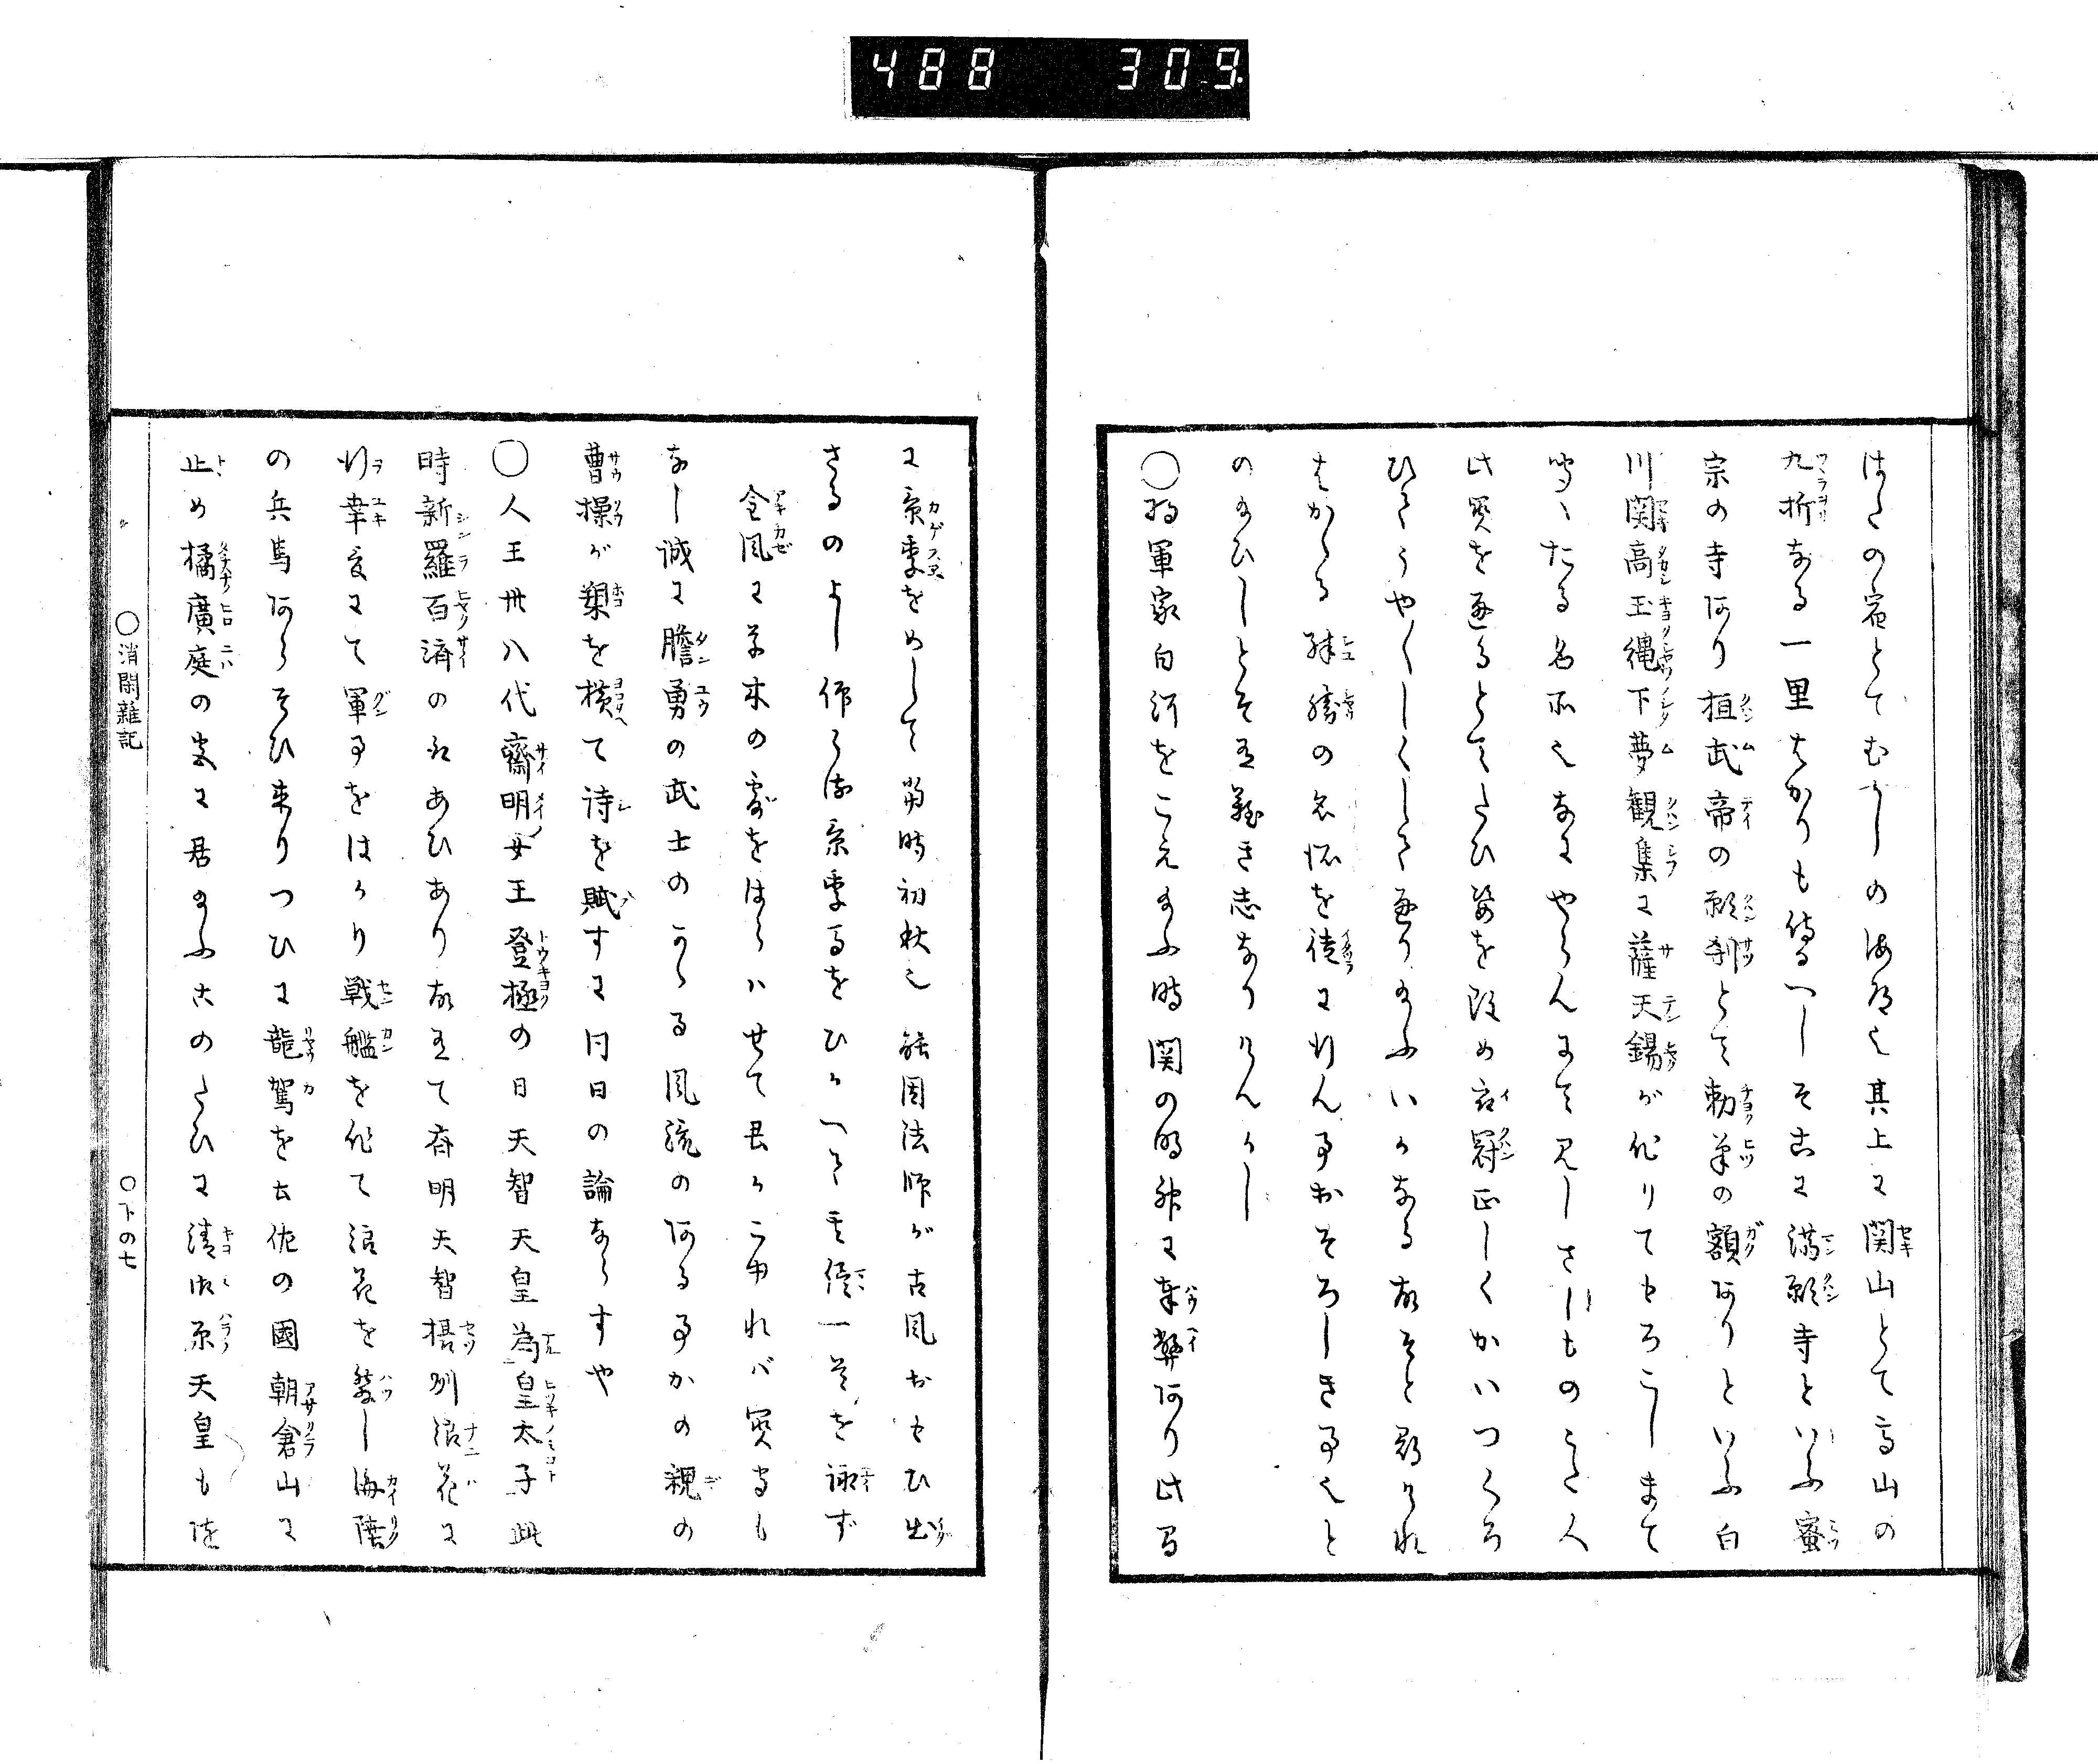 488 309
はたの宿とてむかしの海道也其上に関山とて高山の
九折なる一里はかりも侍るへしそこに満願寺といふ蜜
宗の寺あり桓武帝の願刹とて勅筆の額ありといふ白
川関高玉縄下夢観集に薩天錫が作りてもろこしまて
聞へたる名所也なにやらんにて見しさしものこと人
此関を通るとてたひ姿を改め衣冠正しくかいつくろ
ひてうやくしくして通り給ふいかなる故そと尋けれ
はかゝる殊勝の名所を徒に行ん事おそろしき事也と
のたまひしとそ有難き志なりけんかし
○将軍家白河をこえ給ふ時関の明神に奉弊あり此間
に景季をめして当時初秋也能因法師が古風おもひ出
さるのよし仰らる景季馬をひかへて其儘一首を詠ず
金風に草木の露をはらはせて君かこゆれば関守も
なし誠に膽勇の武士のかゝる風流のある事かの親の
曹操が槊を横て詩を賦すに同日の論ならすや
○人王卅八代齋明女王登極の日天智天皇為皇太子此
時新羅百済の救あひあり故にて斉明天智摂州浪花に
行幸にて軍事をはかり戦艦を作て浪花を發し海陸
の兵馬あらそひ来りつひに龍駕を土佐の國朝倉山に
止め橘廣庭の宮に居給ふ古のたひに清御原天皇も陸
○消閑雜記
○下の七